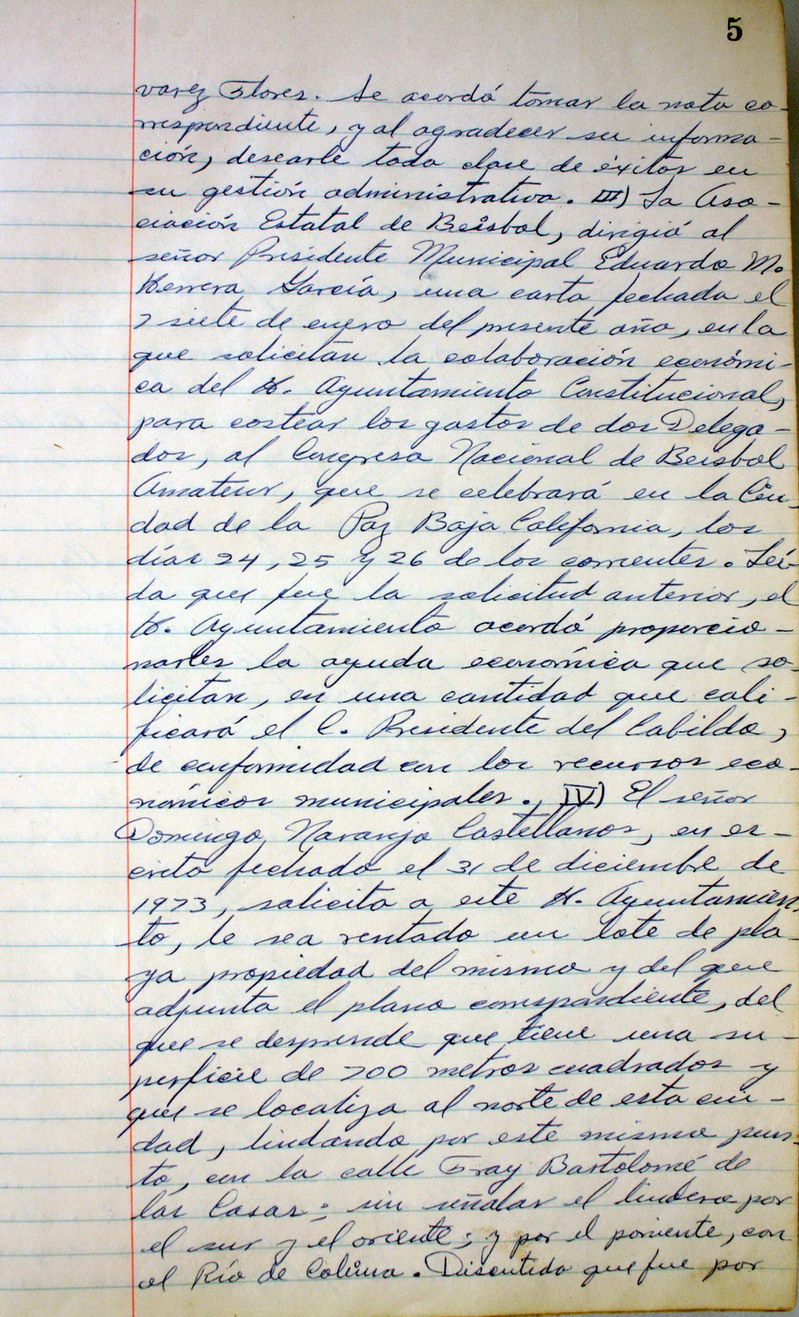 5
varez Flores. Se acordó tomar la nota co-
rrespondiente, y al agradecer su informa-
ción, desearle toda clase de éxitos en
su gestión administrativa. III) La Aso-
ciación Estatal de Beisbol, dirigió al
señor Presidente Municipal Eduardo M.
Herrera García, una carta fechada el
7 siete de enero del presente año, en la
que solicitan la colaboración económi-
ca del H. Ayuntamiento Constitucional,
para costear los gastos de dos Delega-
dos, al Congreso Nacional de Beisbol
Amateur, que se celebrará en la Ciu-
dad de la Paz Baja California, los
días 24, 25 y 26 de los corrientes. Leí-
da que fue la solicitud anterior, el
H. Ayuntamiento acordó proporcio-
narles la ayuda económica que so-
licitan, en una cantidad que cali-
ficará el C. Presidente del Cabildo,
de conformidad con los recursos eco-
nómicos municipales., IV) El señor
Domingo Naranjo Castellanos, en es-
crito fechado el 31 de diciembre de
1973, solicita a este H. Ayuntamien-
to, le sea rentado un lote de pla-
ya propiedad del mismo y del que
adjunta el plano correspondiente, del
que se desprende que tiene una su-
perficie de 700 metros cuadrados y
que se localiza al norte de esta ciu-
dad, lindando por este mismo pun-
to, con la calle Fray Bartolomé de
las Casas; sin señalar el lindero por
el sur y el oriente; y por el poniente, con
el Río de Colima. Discutido que fue por